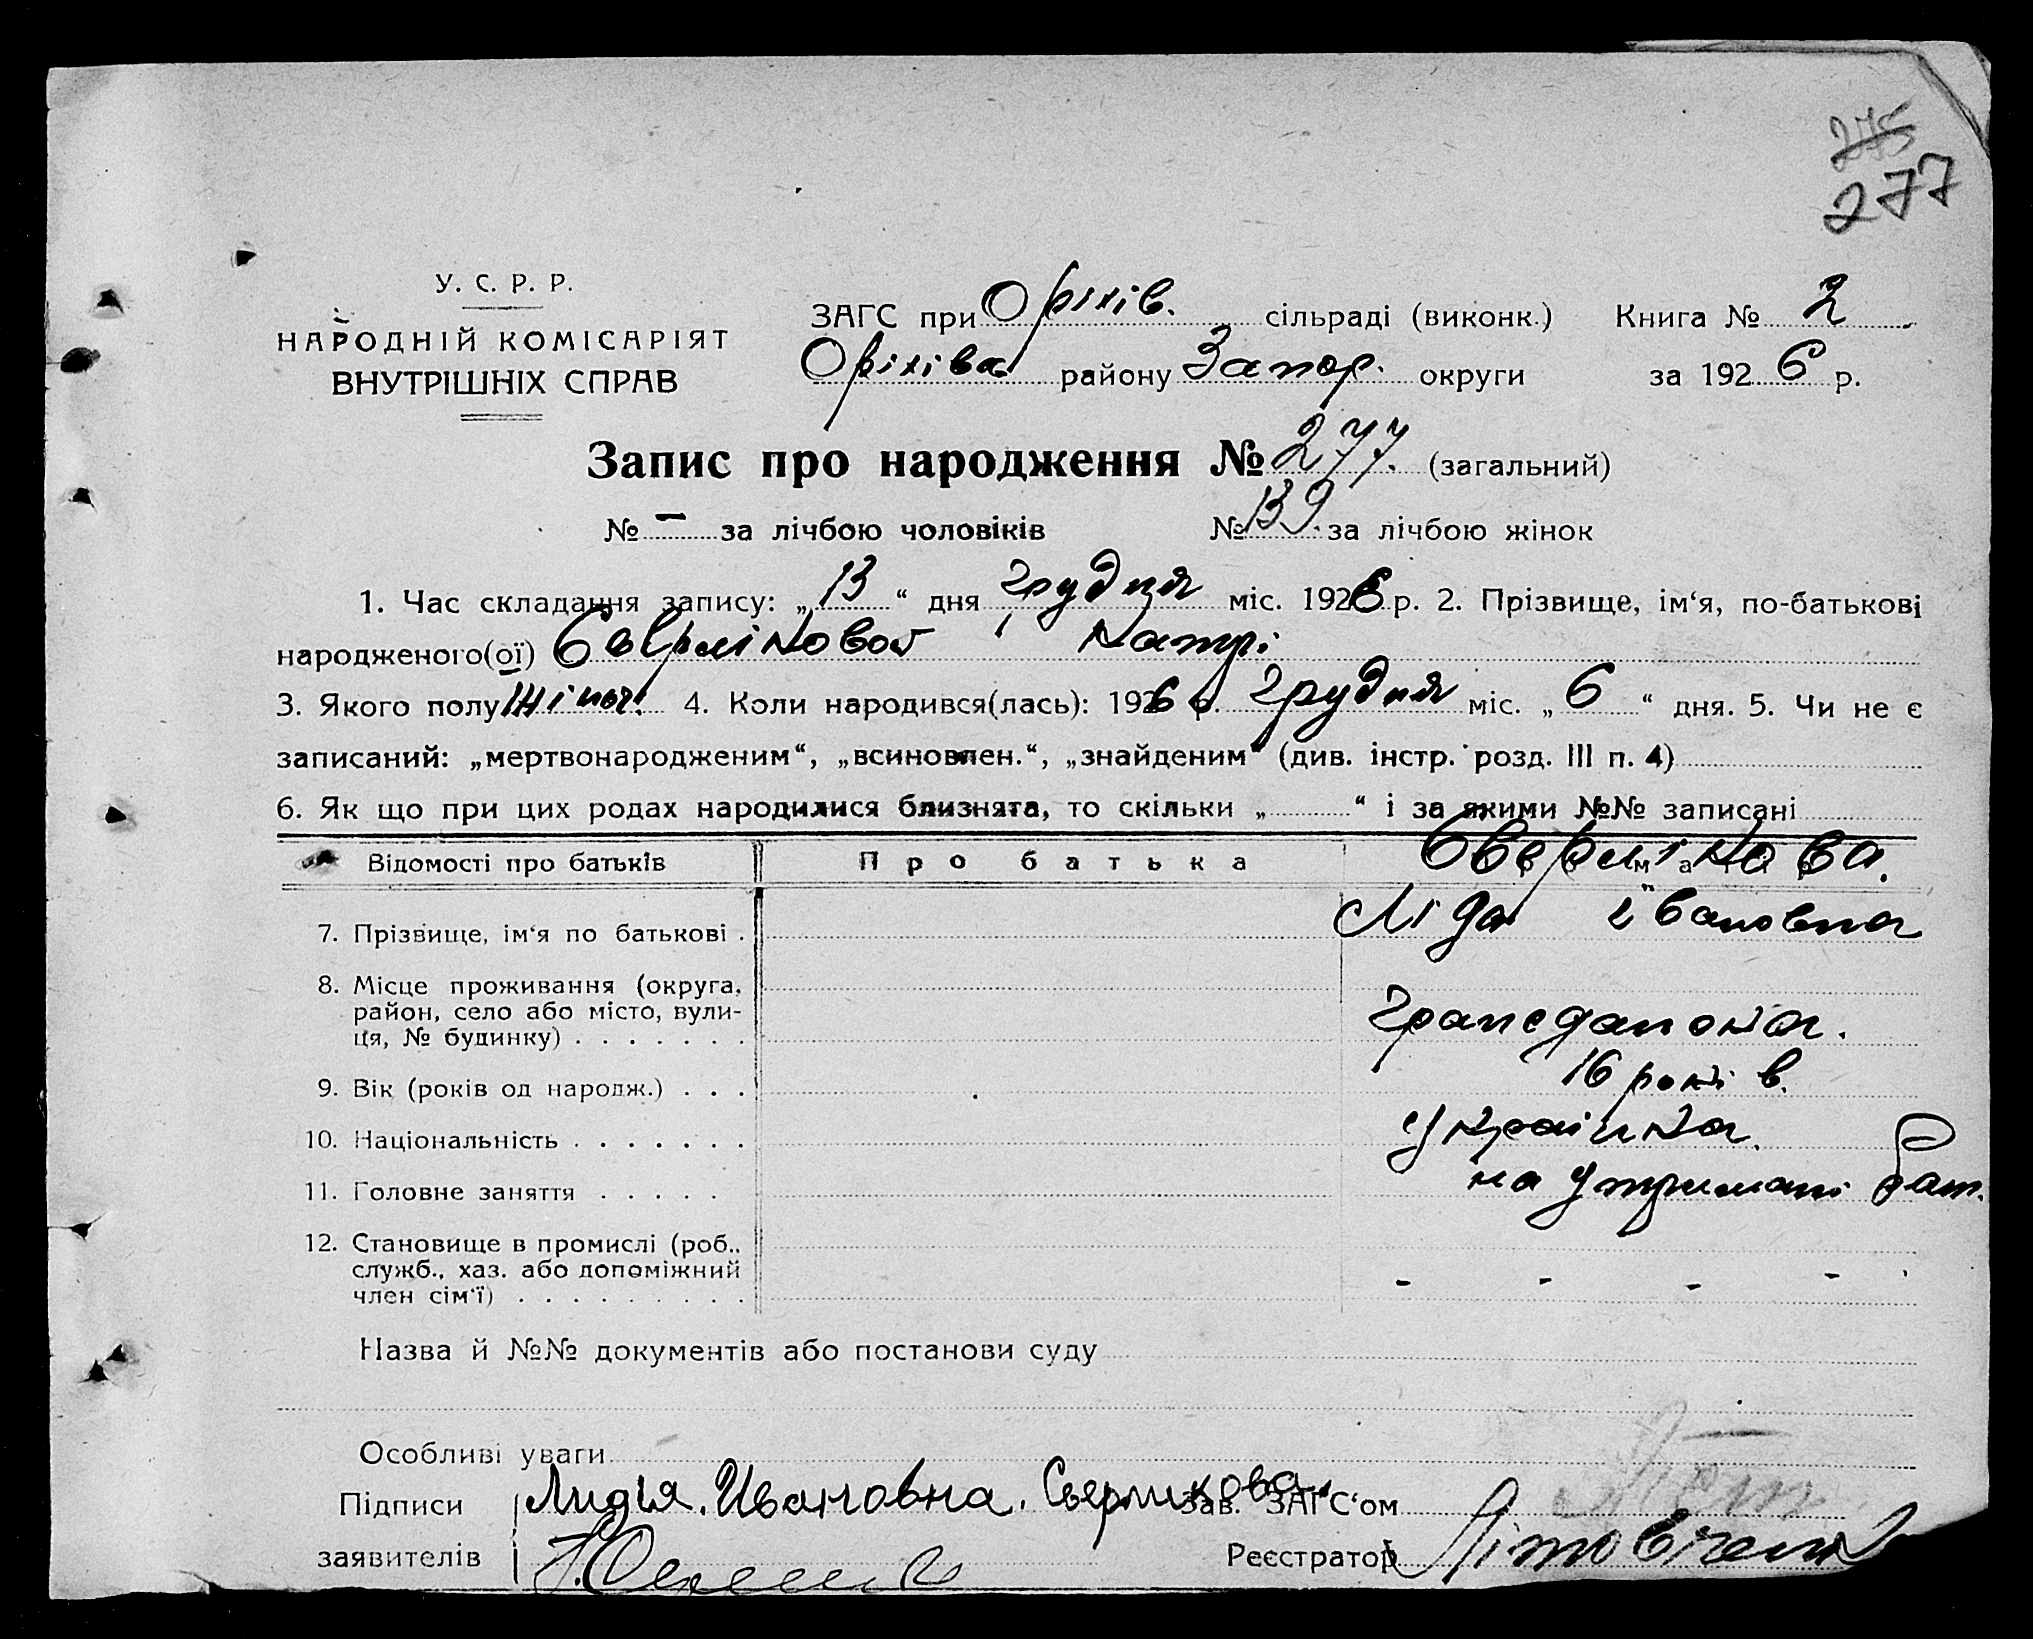 275
277
У. С. Р. Р.
НАРОДНІЙ КОМІСАРІЯТ
ВНУТРІШНІХ СПРАВ
ЗАГС при Оріхів. сільраді (виконк.) Книга № 2
Оріхіва району Запор. округи за 1926 р.
Запис про народження № 277. (загальний)
№ – за лічбою чоловіків № 139. за лічбою жінок
1. Час складання запису: „13“ дня грудня міс. 1926 р. 2. Прізвище, ім‘я, по-батькові
народженого(ої) Катрі
3. Якого полу Жіноч. 4. Коли народився(лась): 1926 р. грудня міс. „6“ дня. 5. Чи не є
записаний: „мертвонародженим“, „всиновлен.“, „знайденим“ (див. інстр. розд. III п. 4)
6. Як що при цих родах народилися близнята, то скільки „ “ і за якими №№ записані
Відомості про батьків Про батька Про матір
Сверлікова.
7. Прізвище, ім‘я по батькові . Ліда Івановна
8. Місце проживання (округа,
район, село або місто, вули-
ця, № будинку) . . . . . . .
9. Вік (років од народж.) . . . 16 років.
10. Національність . . . . . . . Українка.
11. Головне заняття . . . . . на утримані бат.
12. Становище в промислі (роб.,
служб., хаз. або допоміжний
член сім‘ї) . . . . . . . . . - - - -
Назва й №№ документів або постанови суду
Особливі уваги
Підписи Лидия. Ивановна. Сверликова. Зав. ЗАГС‘ом
заявителів Реєстратор